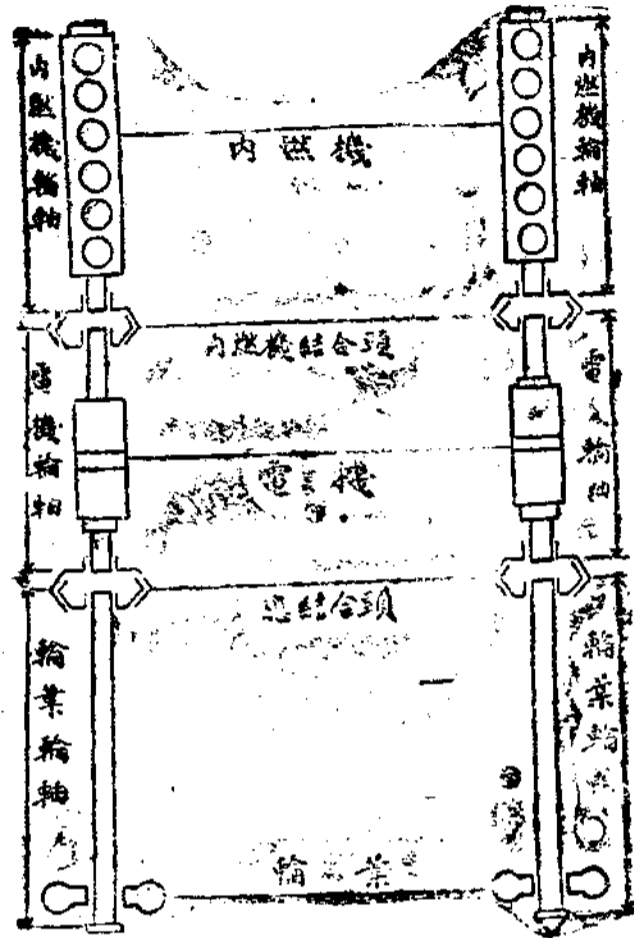 內燃機輪軸
內燃機
內燃機輪軸
內燃機結合頭
電機輪軸
電機
結合頭
輪葉輪軸
輪葉輪
輪葉